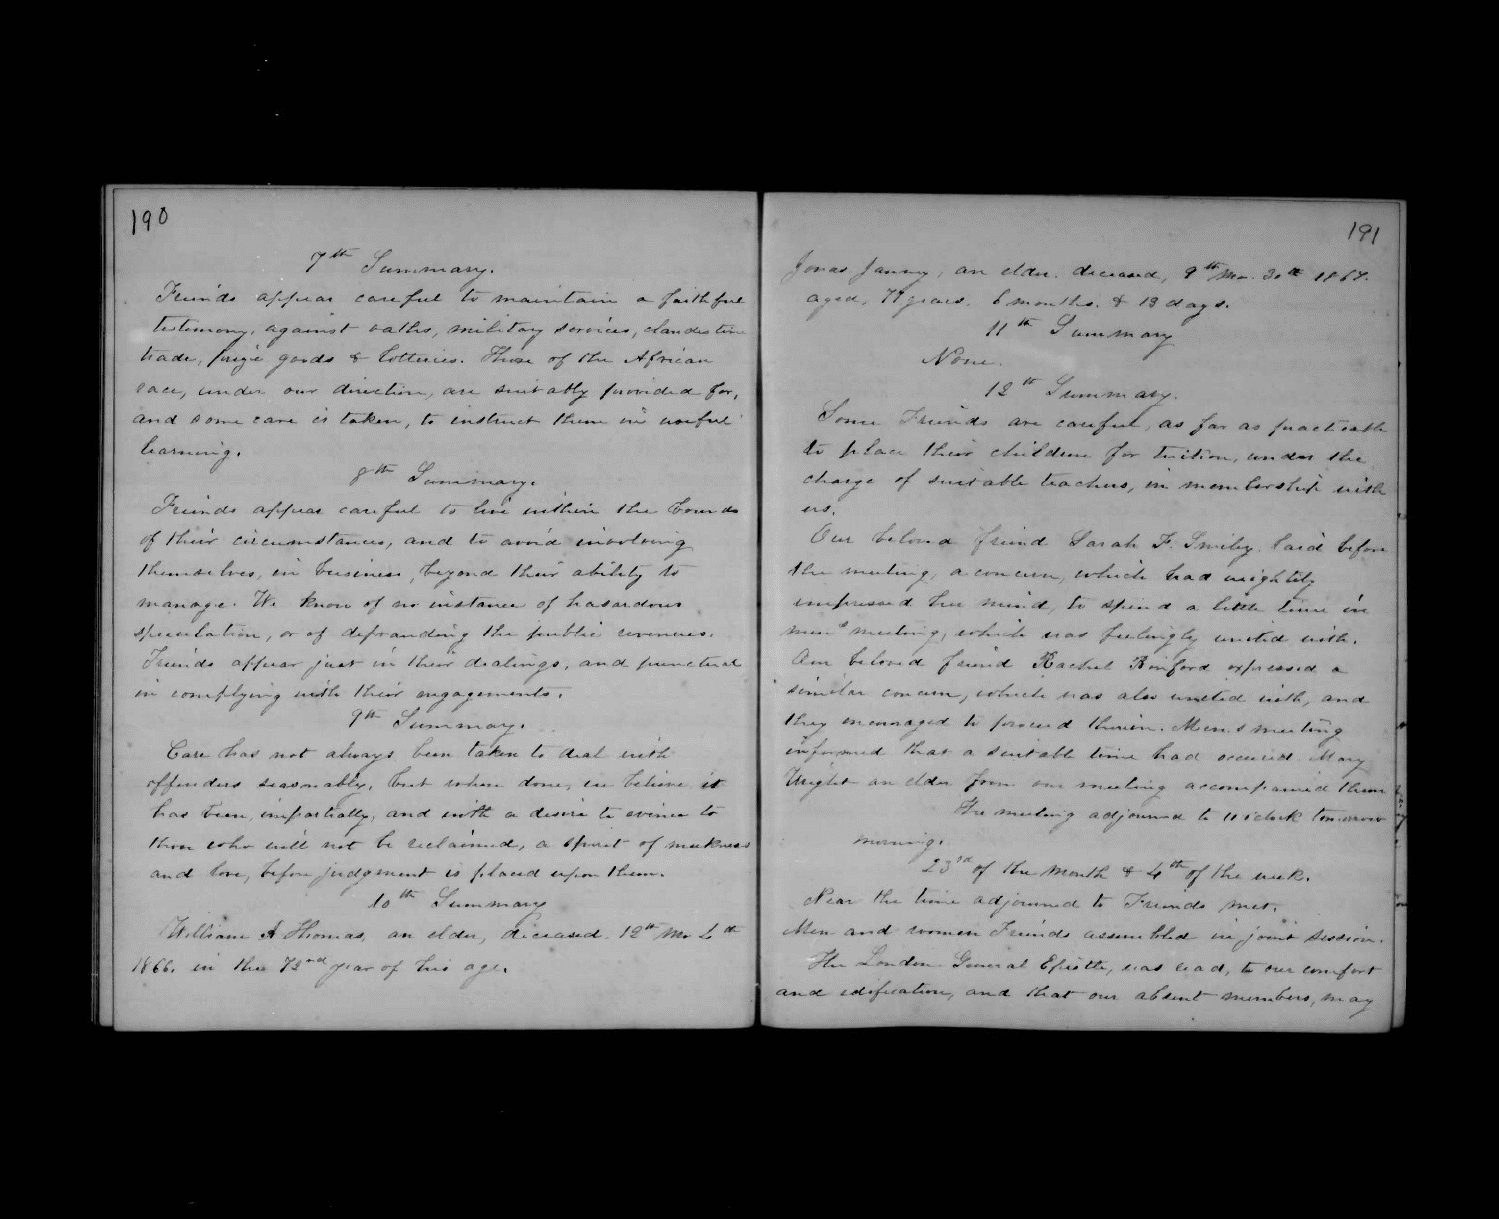 190
7th Summary.
Friends appear careful to maintain a faithful
testimony, against oaths, military services, clandestine
trade, prize goods & lotteries. Those of the African
race, under our direction, are suitably provided for,
and some care is taken, to instruct them in useful
learning.
8th Summary.
Friends appear careful to live within the bounds
of their circumstances, and to avoid involving
themselves, in business, beyond their ability to
manage. We know of no instance of hazardous
speculation, or of defrauding the public revenues.
Friends appear just in their dealings, and punctual
in complying with their engagements.
9th Summary.
Care has not always been taken to deal with
offenders seasonably, but when done, we believe it
has been, impartially, and with a desire to evince to
those who will not be reclaimed, a spirit of meekness
and love, before judgment is placed upon them.
10th Summary
William A Thomas, an elder, deceased. 12th Mo
1866. in the 73rd year of his age.
191
Jonas Janney, an elder. deceased, 9th Mo. 30th 1867.
aged, 77 years. 6 months. & 19 days.
11th Summary
None.
12th Summary.
Some Friends are careful, as far as practicable
to place their children for tuition, under the
charge of suitable teachers, in membership with
us.
Our beloved friend Sarah F. Smiley, laid before
the meeting, a concern, which had weightily
impressed her mind, to spend a little time in
men's meeting, which was feelingly united with.
Our beloved friend Rachel Binford expressed a
similar concern, which was also united with, and
they encouraged to proceed therein. Men's meeting
informed that a suitable time had occured. Mary
Wright an elder from our meeting accompanied them
The meeting adjourned to 11 o'clock tomorrow
morning.
23rd of the month & 4th of the week.
Near the time adjourned to Friends met.
Men and women Friends assembled in joint session.
The London General Epistle, was read, to our comfort
and edification, and that our absent members, may